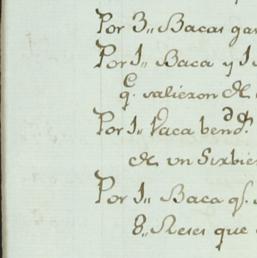 Por 3,, Bacas
Por 1,, Baca y 1
q.e salieron de
Por 1,, Vaca bend.da
de un Sirbien
Por 1,, Baca q.
8,, Reses que